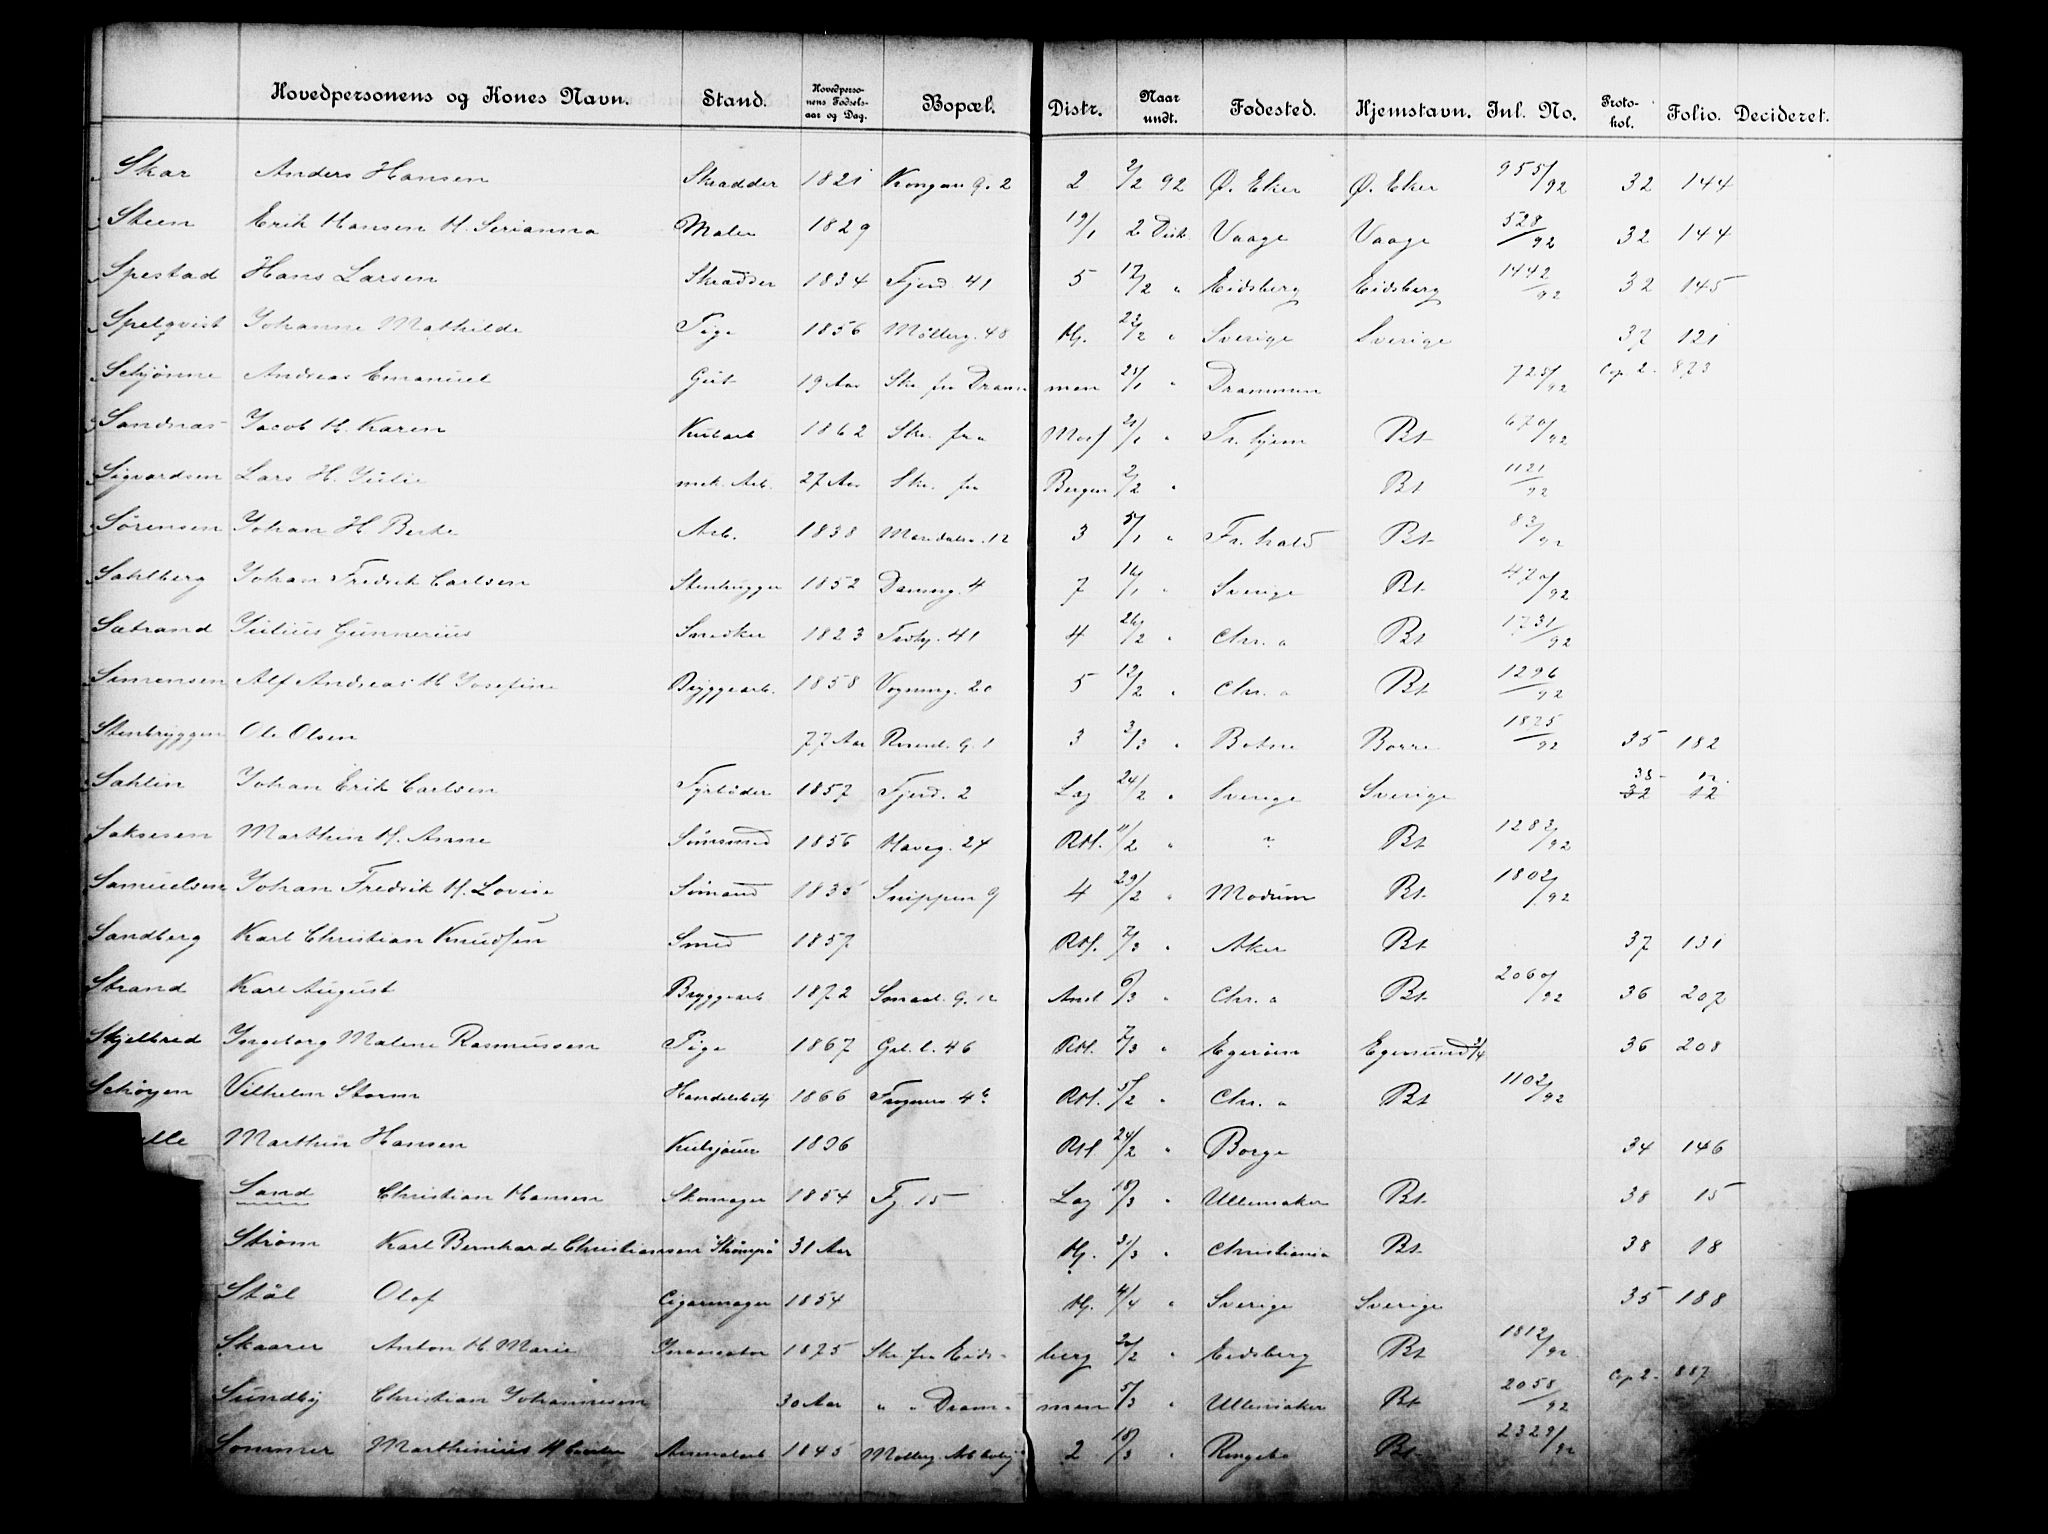 Hovedpersonens og Kones Navn. Stand. Hovedpersonens Fødselsaar og Dag. Bopæl. Distr. Naar undt. Fødested. Hjemstavn. Inl. No. Protokol. Folio. Decideret.
Skar Anders Hansen Skrædder 1821 Kongens G. 2 2 2/2 92 Ø. Eker Ø. Eker 955/92 32 144
Steen Erik Hansen H. Serianna Maler 1829 19/1 2 Distr. Vaage Vaage 528/92 32 144
Spestad Hans Larsen Skrædder 1834 Fjerd. 41 5 17/2 " Eidsberg Eidsberg 1442/92 32 145
Spelqvist Johanne Mathilde Pige 1856 Möllerg. 48 Hj. 23/2 " Sverige Sverige 37 121
Schjønne Andreas Emanuel Gut 19 Aar Skr. fra Drammen 25/1 " Drammen 725/92 Cop. 2. 873
Sandnæs Jacob H. Karen 1862 Skr. fra Moss 21/1 " Tr.hjem Bt 670/92
Sigvardsen Lars H. Julie mek. Arb. 27 Aar Skr. fra Bergen 2/2 " Bt 1121/92
Sörensen Johan H Berthe Arb. 1838 Maridalsv. 12 3 5/1 " Fr.hald Bt 83/92
Sahlberg Johan Fredrik Carlsen Stenhugger 1852 4 7 16/1 " Sverige Bt. 470/92
Sætrand Julius Gunnerius Snedker 1823 41 4 26/2 " Chr.a Bt 1731/92
Simensen Alf Andreas H Josefine Bryggearb. 1858 Vognmg. 20 5 12/2 " Chr.a Bt 1296/92
Stenbryggen Ole Olsen 77 Aar Rosenk. G. 1 3 3/3 " Botne Borre 1825/92 35 182
Sahlin Johan Erik Carlsen Fyrbøder 1857 Fjerd. 2 Lag 24/2 " Sverige Sverige 38 12 32 12
Saksesen Marthin H. Anne Sömsmed 1856 Haveg. 24 RM. 11/2 " " Bt 1283/92
Samuelsen Johan Fredrik H. Lovise Sömand 1835 Snippen 9 4 29/2 " Modum Bt. 1802/92
Sandberg Karl Christian Knudsen Smed 1857 RM. 7/3 " Aker Bt 37 131
Strand Karl August Bryggearb 1872 Smaal. G. 12 And 6/3 " Chr.a Bt 2060/92 36 207
Skjelbred Ingeborg Malene Rasmussen Pige 1867 Grl. l. 46 RM. 7/3 " Egerøen Egersund 3/4 36 208
Schøyen Vilhelm Storm Handelsbetj 1866 Frognerv 4b RM. 5/2 " Chr.a Bt 1102/92
Marthin Hansen Kulsjouer 1896 RM. 24/2 " Borge 34 146
Sand Christian Hansen Skomager 1854 Fj. 15 Lag 18/3 " Ullensaker Bt. 38 15
Strøm Karl Bernhard Christiansen 31 Aar Hj. 31/3 " Christiania Bt. 38 18
Stål Olof Cigarmager 1854 Hj. 4/4 " Sverige Sverige 35 188
Skaarer Anton H. Marie 1875 Skr. fra Eidsberg 20/2 " Eidsberg Bt 1812/92
Sundby Christian Johannesen 30 Aar " " Drammen 5/3 " Ullensaker Bt 2058/92 Cop. 2. 887
Sommer Marthinius H. Arsenalarb 1845 Mollerg. 2 18/3 " Ringebo Bt 2329/92